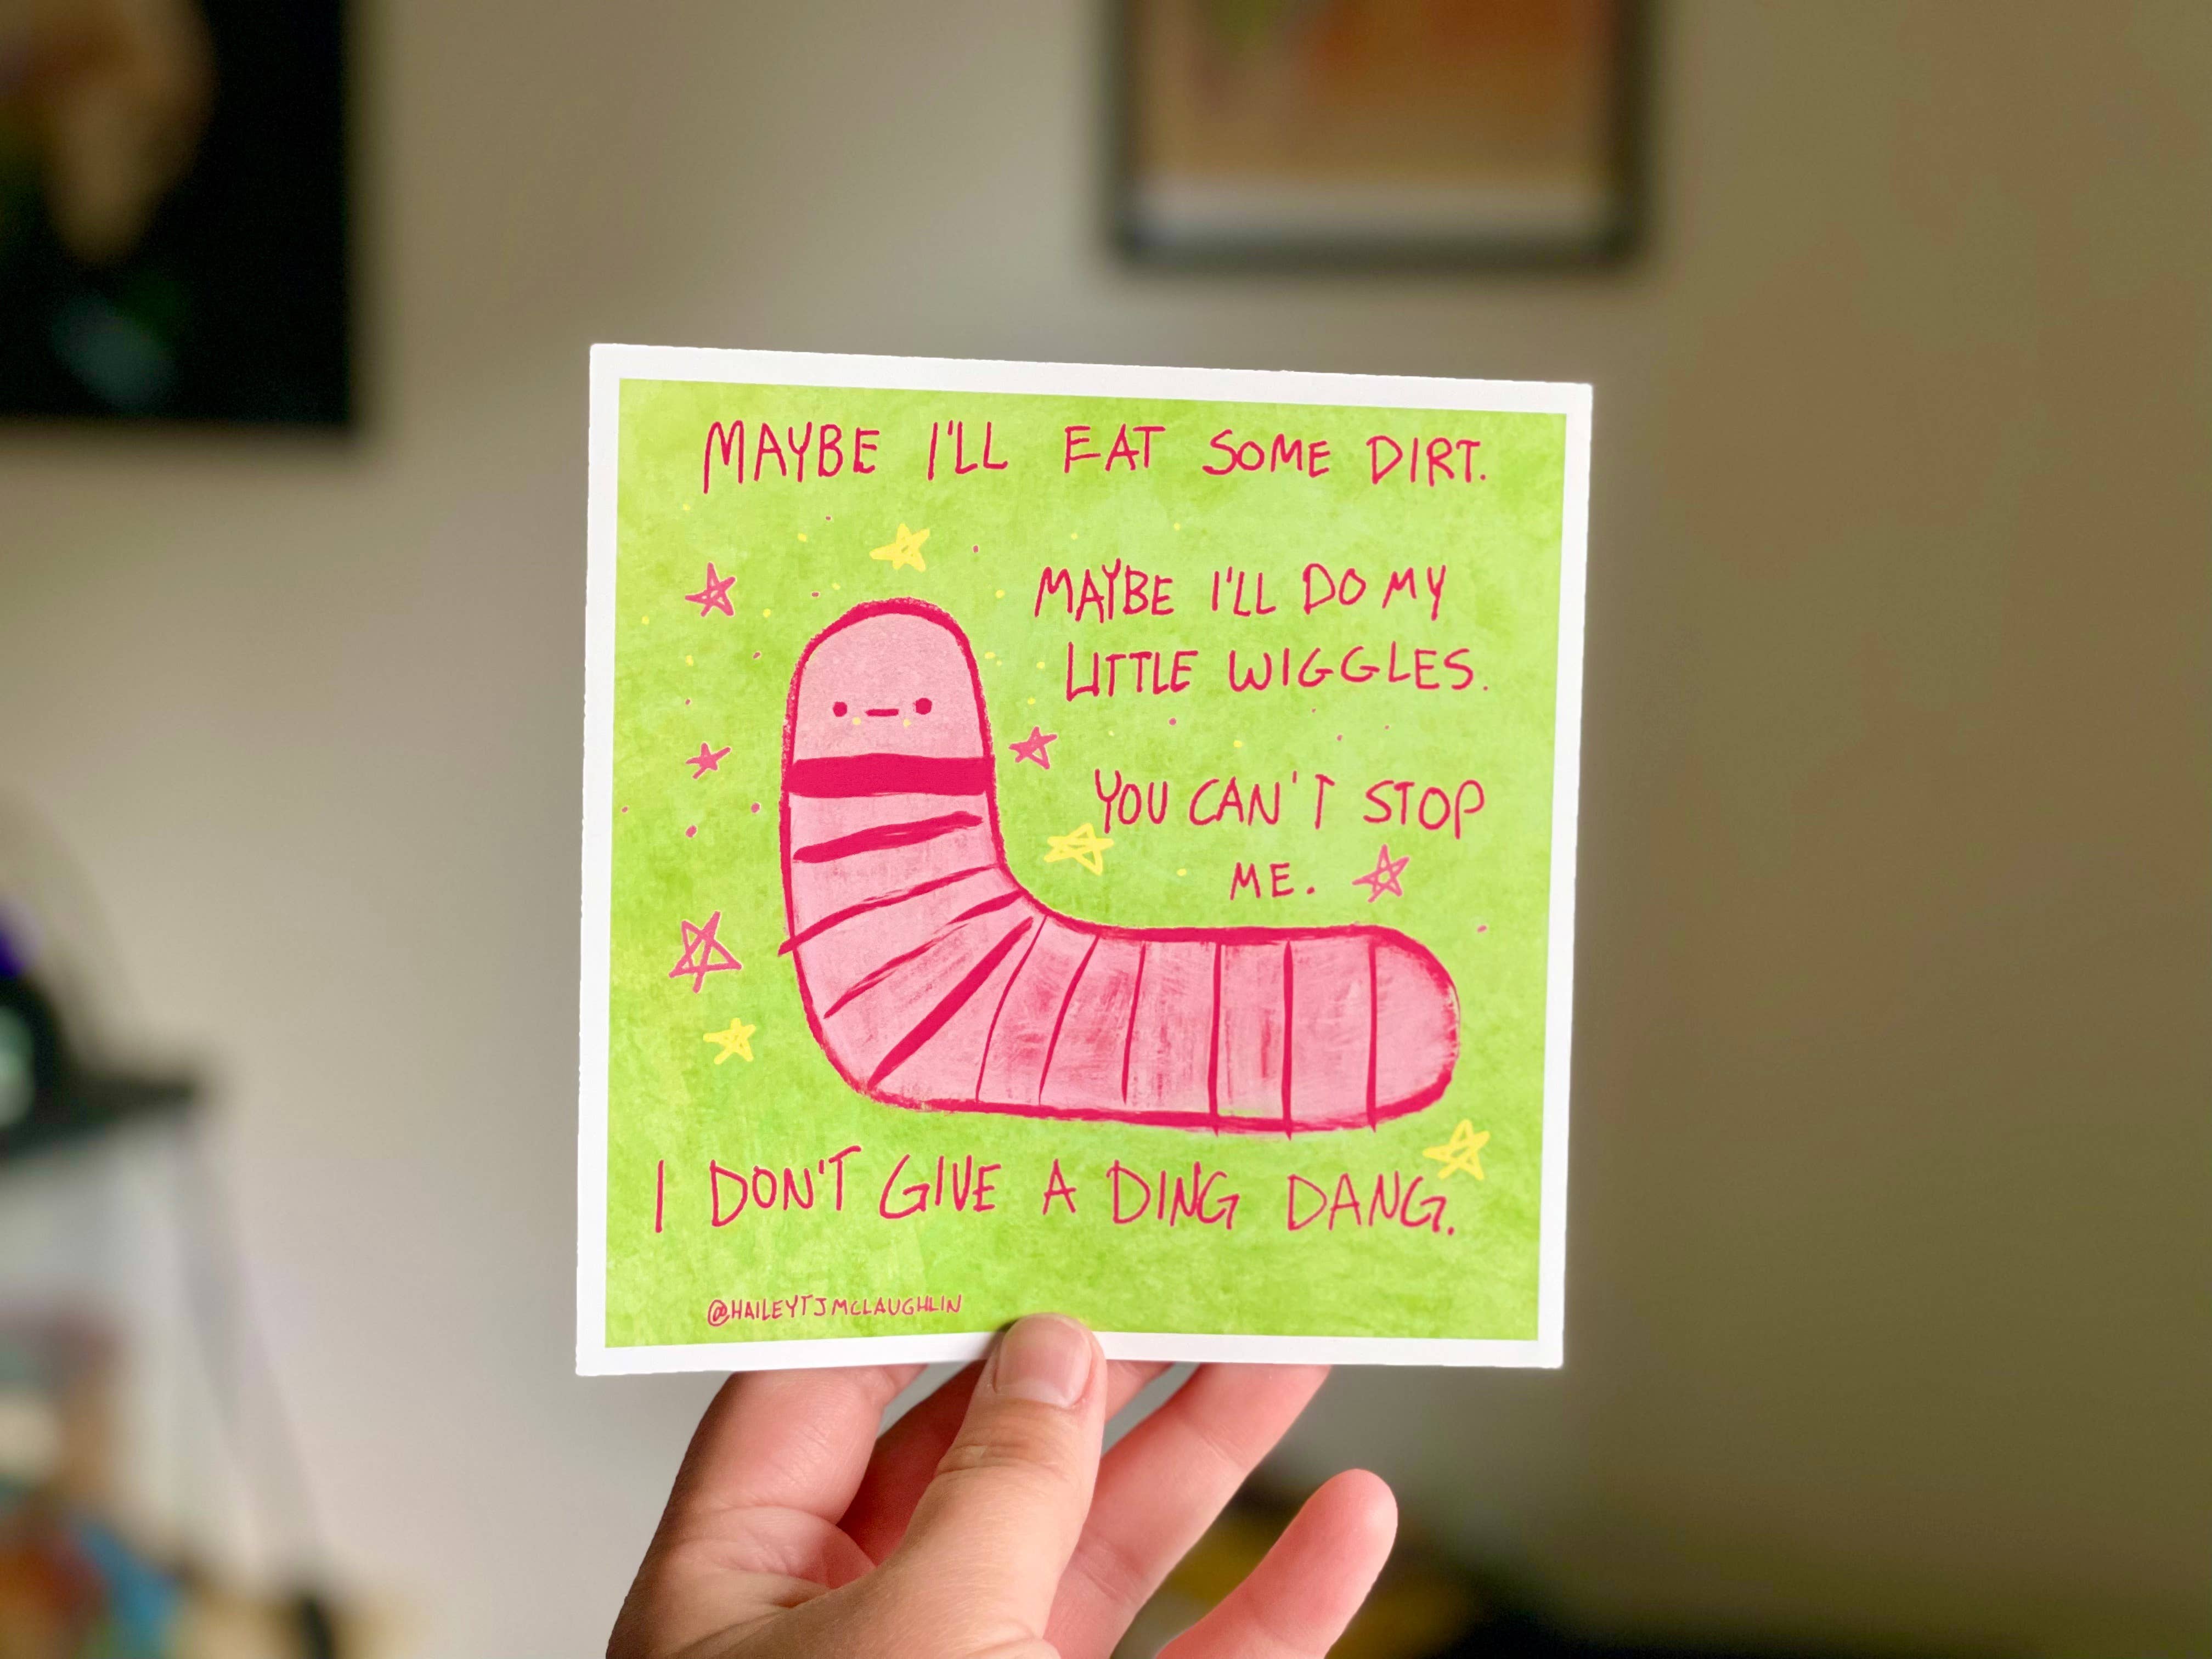 MAYBE I'LL EAT SOME DIRT.
MAYBE I'LL DO MY
LITTLE WIGGLES.
YOU CAN'T STOP
ME.
I DON'T GIVE A DING DANG.
@HAILEYTJMCLAUGHLIN